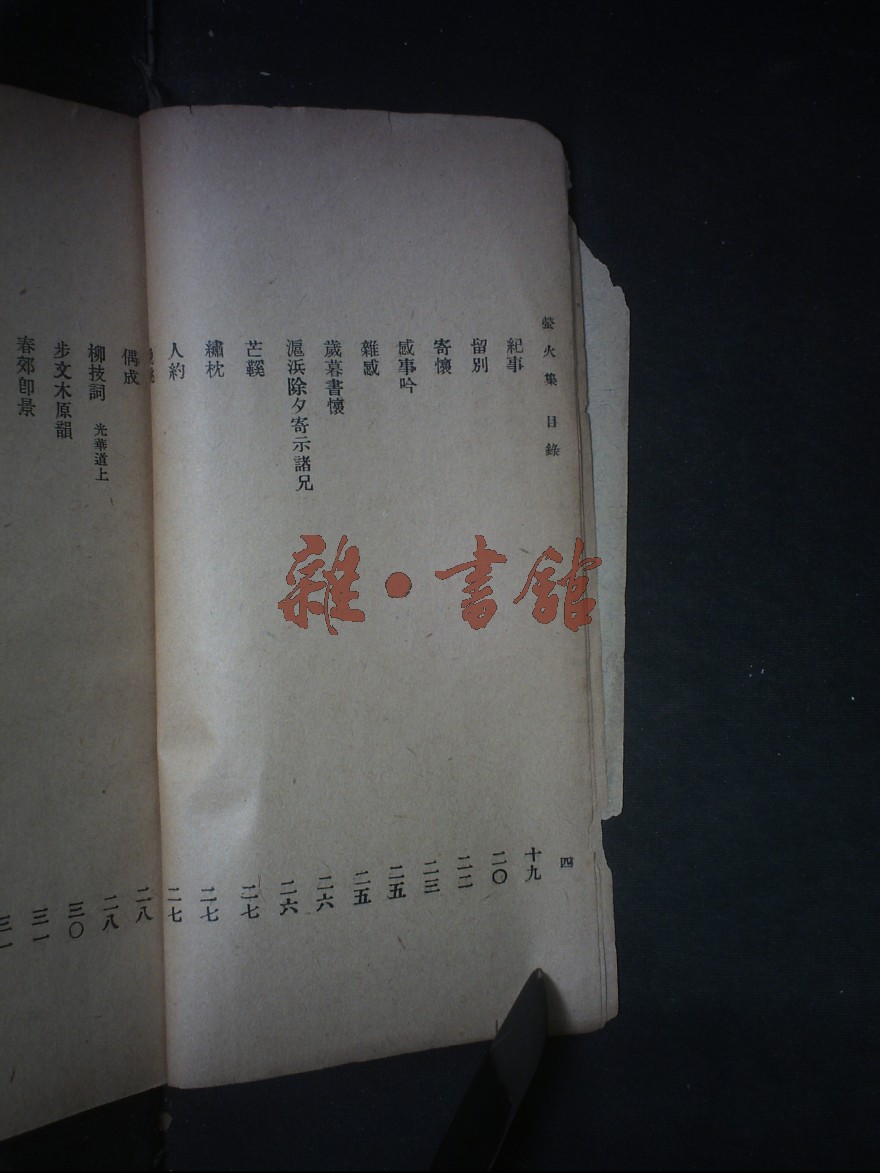 螢火集 目錄 四
紀事 十九
留別 二〇
寄懷 二二
感事吟 二三
雜感 二五
歲暮書懷 二五
滬浜除夕寄示諸兄 二六
芒鞵 二六
繡枕 二七
人約 二七
二七
偶成 二八
柳技詞 光華道上 二八
步文木原韻 三〇
春郊卽景 三一
三一
雜·書館